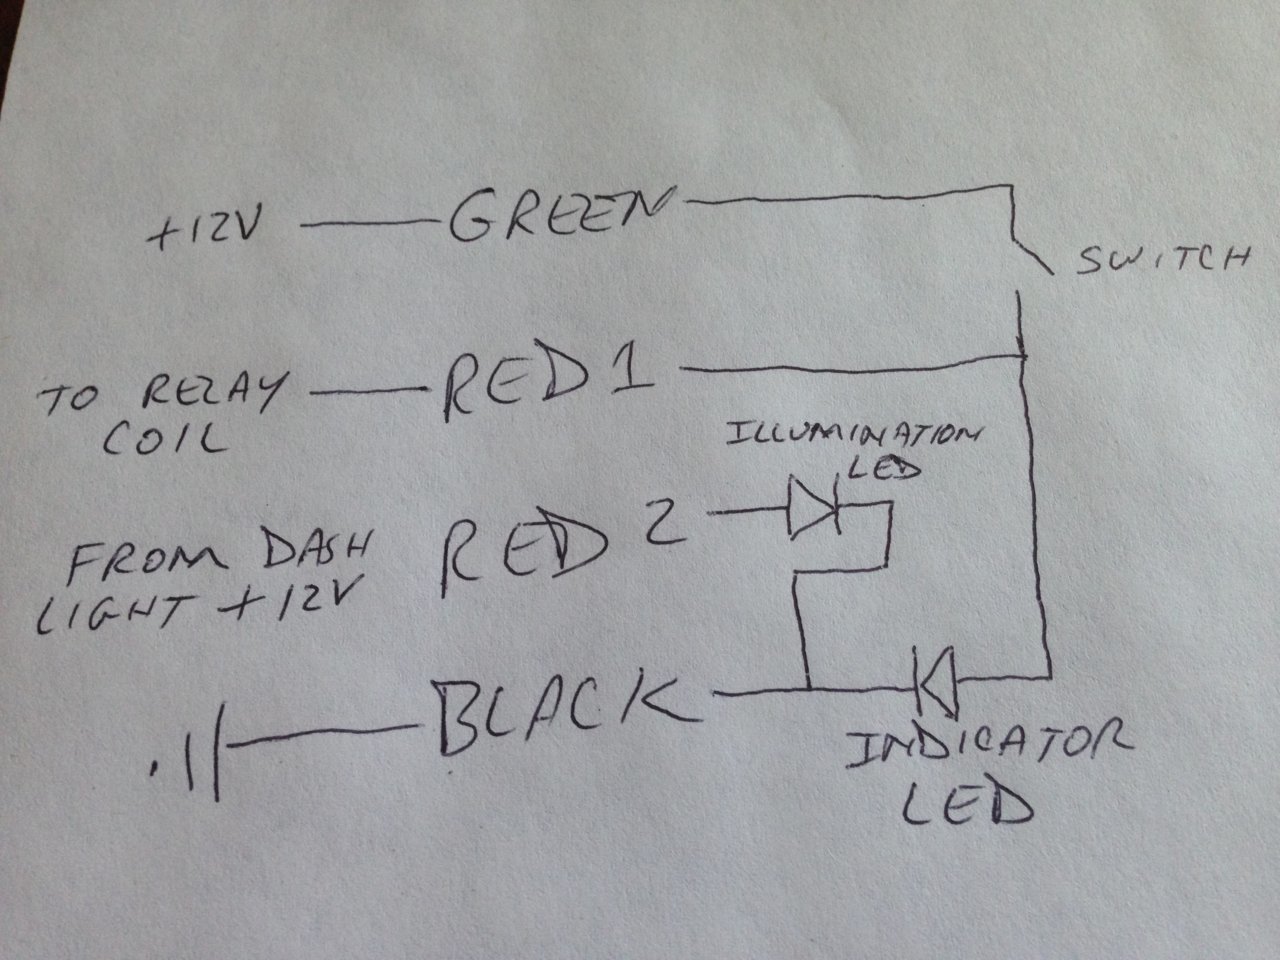 +12V GREEN
SWITCH
TO RELAY COIL RED 1
ILLUMINATION
LED
FROM DASH RED 2
LIGHT +12V
BLACK
INDICATOR
LED